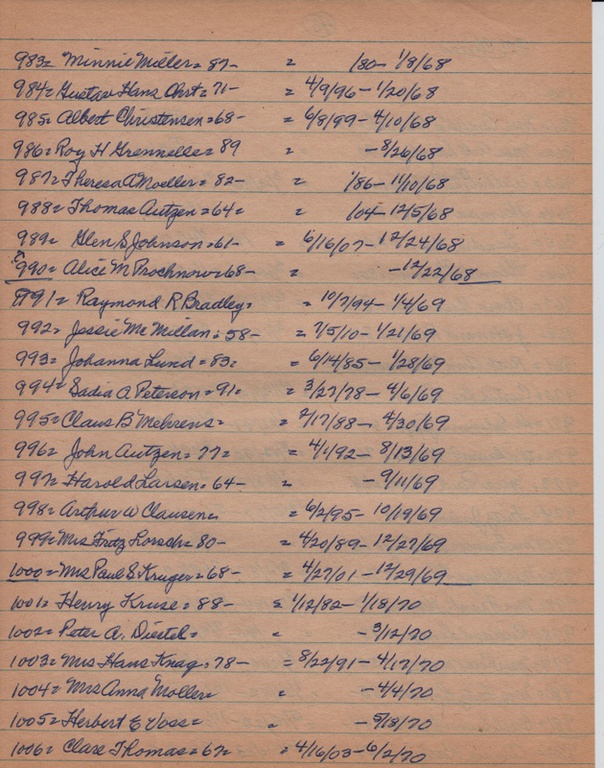 983= Minnie Miller= 87- = /80- 1/8/68
984= Gustav Hans Ohrt= 71- = 4/9/96- 1/20/68
985= Albert Christensen=68- = 6/8/99- 4/10/68
986= Roy H Grennelle= 89 = -8/26/68
987= Theresa A Moeller= 82- = /86- 11/10/68
988= Thomas Autzen=64= = /04- 12/5/68
989= Glen S Johnson=61- = 6/16/07- 12/24/68
990= Alice M Prochnow=68- = -12/22/68
991= Raymond R Bradley= = 10/7/94- 1/4/69
992= Jessie Mc Millan= 58- = 7/5/10- 1/21/69
993= Johanna Lund= 83= = 6/14/85- 1/28/69
994= Sadia A Peterson=91= = 3/27/78- 4/6/69
995= Claus B Mehrens= = 2/17/88- 4/30/69
996= John Autzen= 77= = 4/1/92- 8/13/69
997= Harold Larsen= 64- = -9/11/69
998= Arthur W Clausen= = 6/2/95- 10/19/69
999= Mrs Fritz Lorsch= 80- = 4/20/89- 12/27/69
1000= Mrs Paul S Kruger=68- = 4/27/01- 12/29/69
1001= Henry Kruse= 88- = 1/12/82- 1/18/70
1002= Peter A. Diestel= = -3/12/70
1003= Mrs Hans Knag= 78- = 8/22/91- 4/17/70
1004= Mrs Anna Moller= = -4/4/70
1005= Herbert E Voss= = -5/13/70
1006= Clare Thomas=67= = 4/16/03-6/2/70